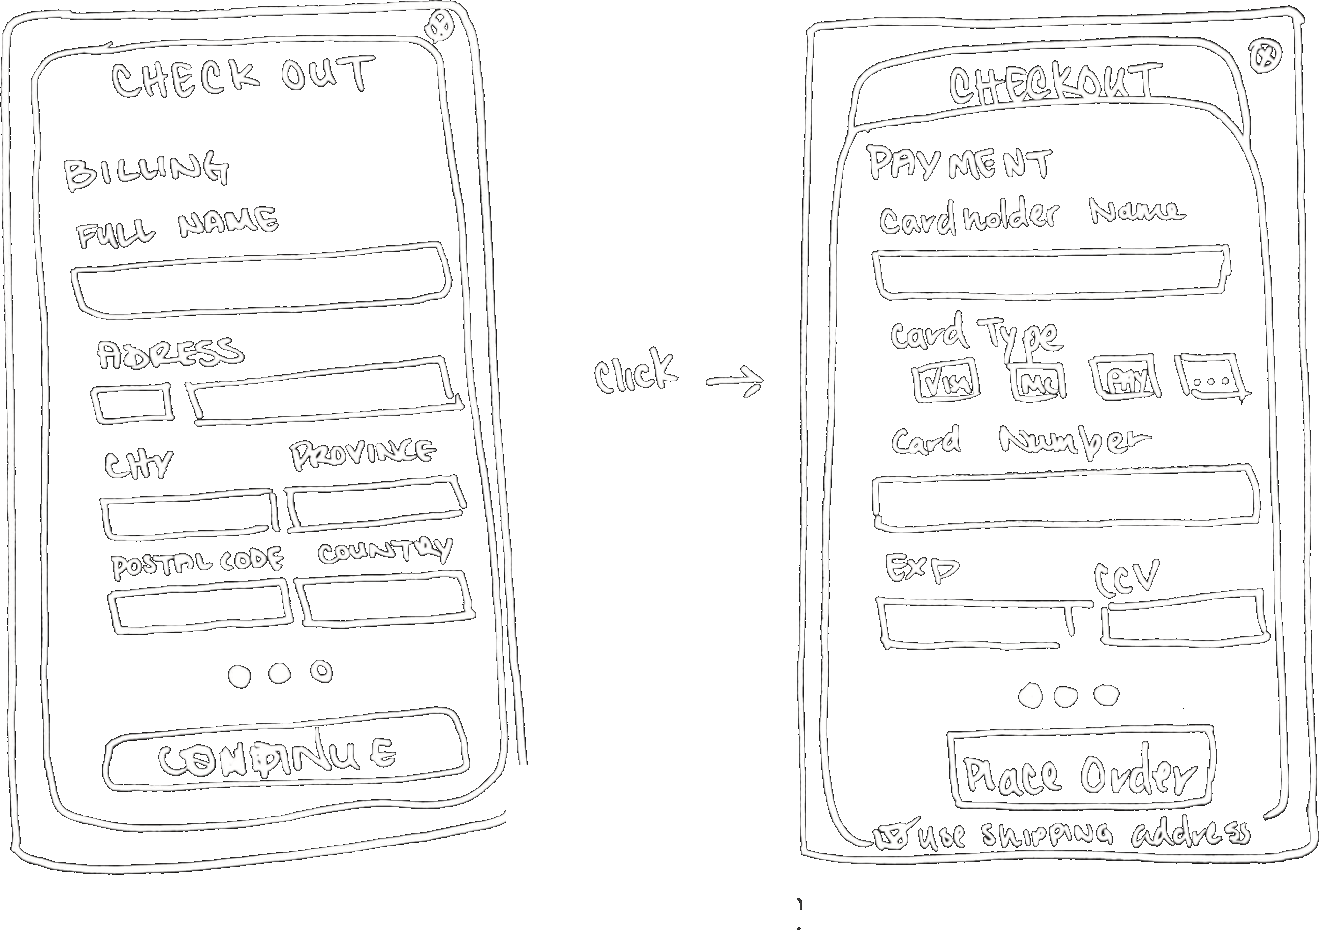 CHECK OUT
BILLING
FULL NAME
ADRESS
CITY PROVINCE
POSTAL CODE COUNTRY
CONTINUE
Click →
CHECKOUT
PAYMENT
Cardholder Name
Card Type
MC ...
Card Number
EXP CCV
Place Order
Use shipping address